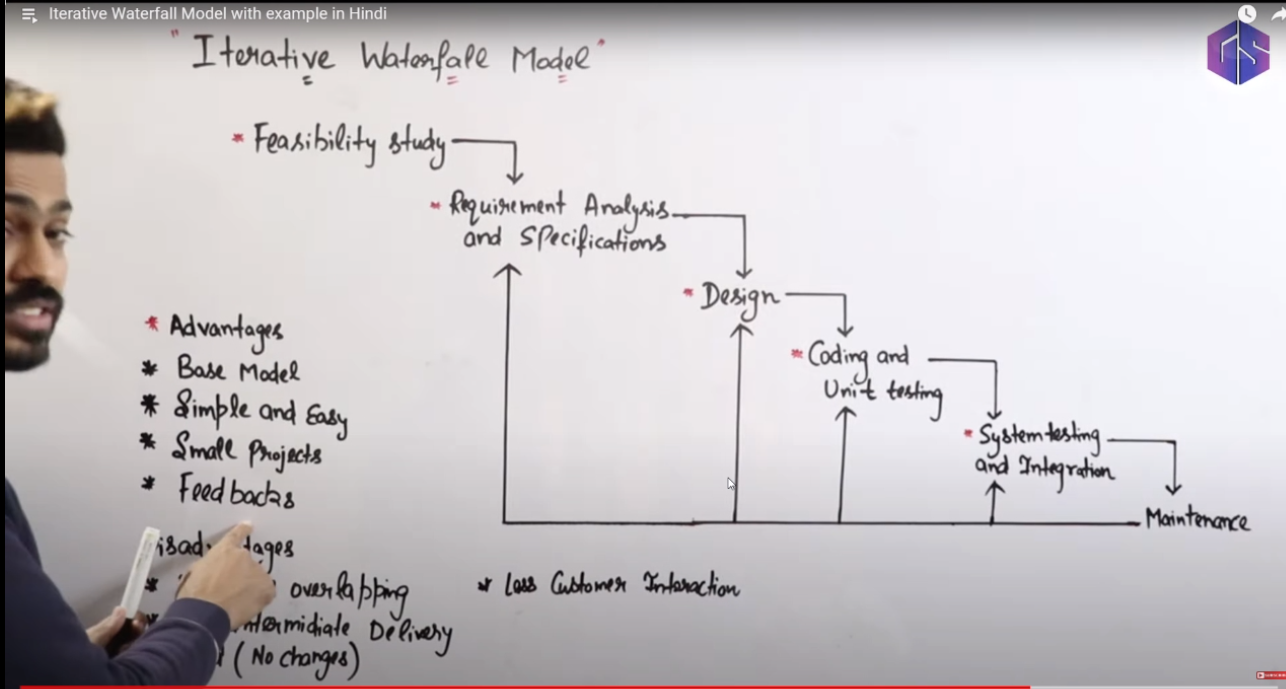 Iterative Waterfall Model with example in Hindi
"Iterative Waterfall Model"
* Feasibility study
* Requirement Analysis
and Specifications
* Design
* Coding and
Unit testing
* System testing
and Integration
Maintenance
* Advantages
* Base Model
* Simple and Easy
* Small Projects
* Feedbacks
* overlapping
Intermidiate Delivery
(No changes)
* Less Customer Interaction